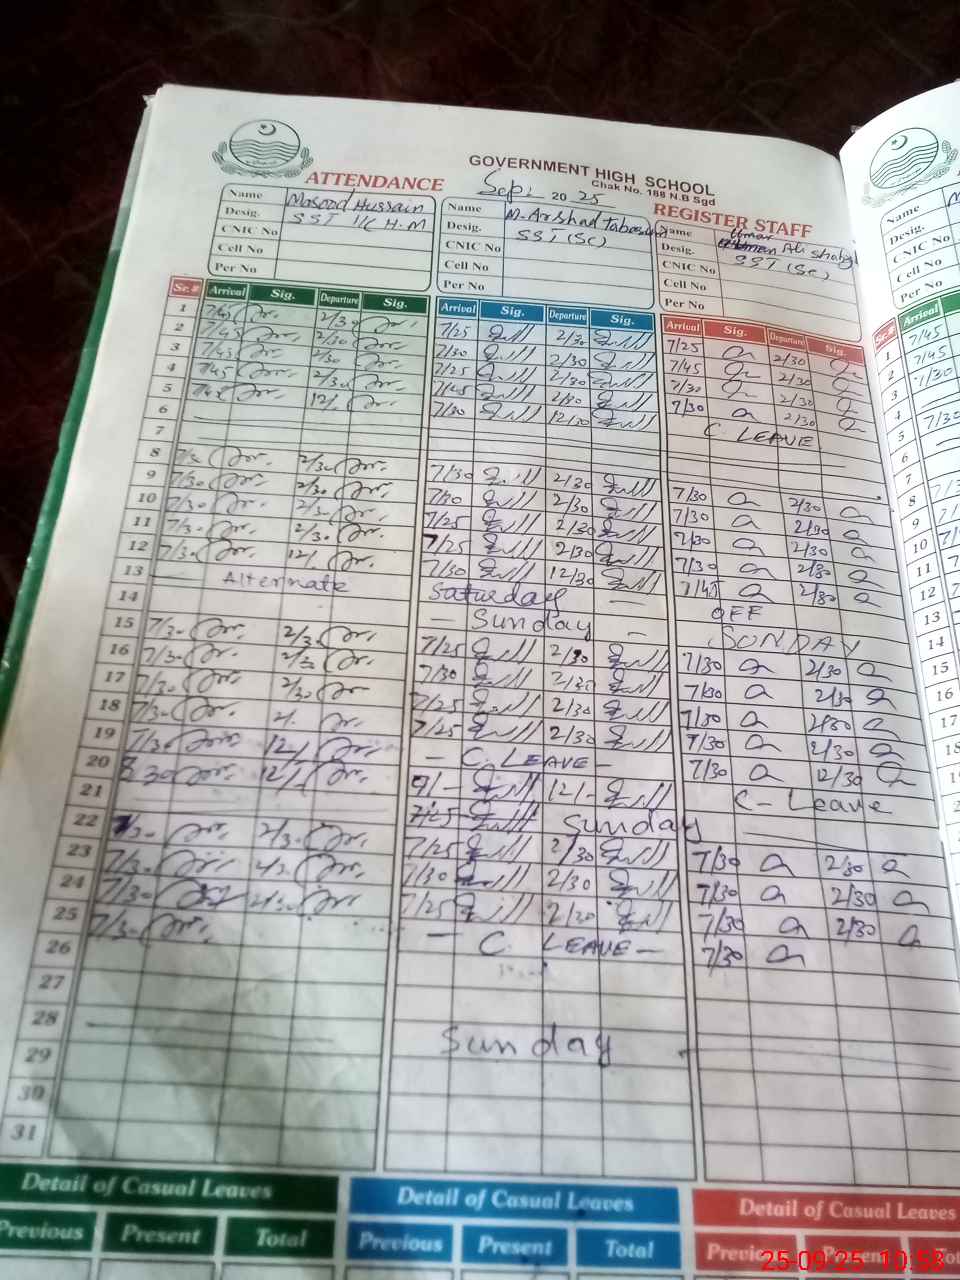 GOVERNMENT HIGH SCHOOL
Chak No. 188 N.B Sgd
ATTENDANCE Sep: 2025 REGISTER STAFF
Name Masood Hussain Name M. Arshad Name Umar Ali
Desig. SST I/C H.M Desig. SST (Sc) Desig. SST (Sc)
CNIC No CNIC No CNIC No
Cell No Cell No Cell No
Per No Per No Per No
Sr.# Arrival Sig. Departure Sig. Arrival Sig. Departure Sig. Arrival Sig. Departure Sig.
1 7/45 2/30 7/25 2/30 7/25 2/30
2 7/45 2/30 7/30 2/30 7/45 2/30
3 7/45 2/30 7/25 2/30 7/30 2/30
4 7/45 2/30 7/45 2/30 7/30 2/30
5 7/45 12/ 7/30 12/30 C. LEAVE
6
7
8 2/30 7/30 2/30 7/30 2/30
9 7/30 2/30 7/20 2/30 7/30 2/30
10 7/30 2/30 7/25 2/30 7/30 2/30
11 7/30 2/30 7/25 2/30 7/30 2/30
12 7/30 12/ 7/30 12/30 7/45 2/30
13 — Alternate Saturday — OFF
14 — Sunday — SUNDAY
15 7/30 2/30 7/25 2/30 7/30 2/30
16 7/30 2/30 7/30 2/30 7/30 2/30
17 7/30 2/30 7/25 2/30 7/30 2/30
18 7/30 2/ 7/25 2/30 7/30 2/30
19 7/30 12/ — C. LEAVE — 7/30 12/30
20 8/30 12/ 9/- 12/- C- Leave
21 Sunday
22 7/30 2/30 7/25 2/30 7/30 2/30
23 7/30 2/30 7/30 2/30 7/30 2/30
24 7/30 2/30 7/25 2/30 7/30 2/30
25 7/30 — C. LEAVE — 7/30
26
27
28 Sunday
29
30
31
Detail of Casual Leaves Detail of Casual Leaves Detail of Casual Leaves
Previous Present Total Previous Present Total Previous Present
Name
Desig.
CNIC No
Cell No
Per No
Sr.# Arrival
1 7/45
2 7/45
3 7/30
4
5 7/30
6
7
8
9
10
11
12
13
14
15
16
17
18
25-09-25 10:58